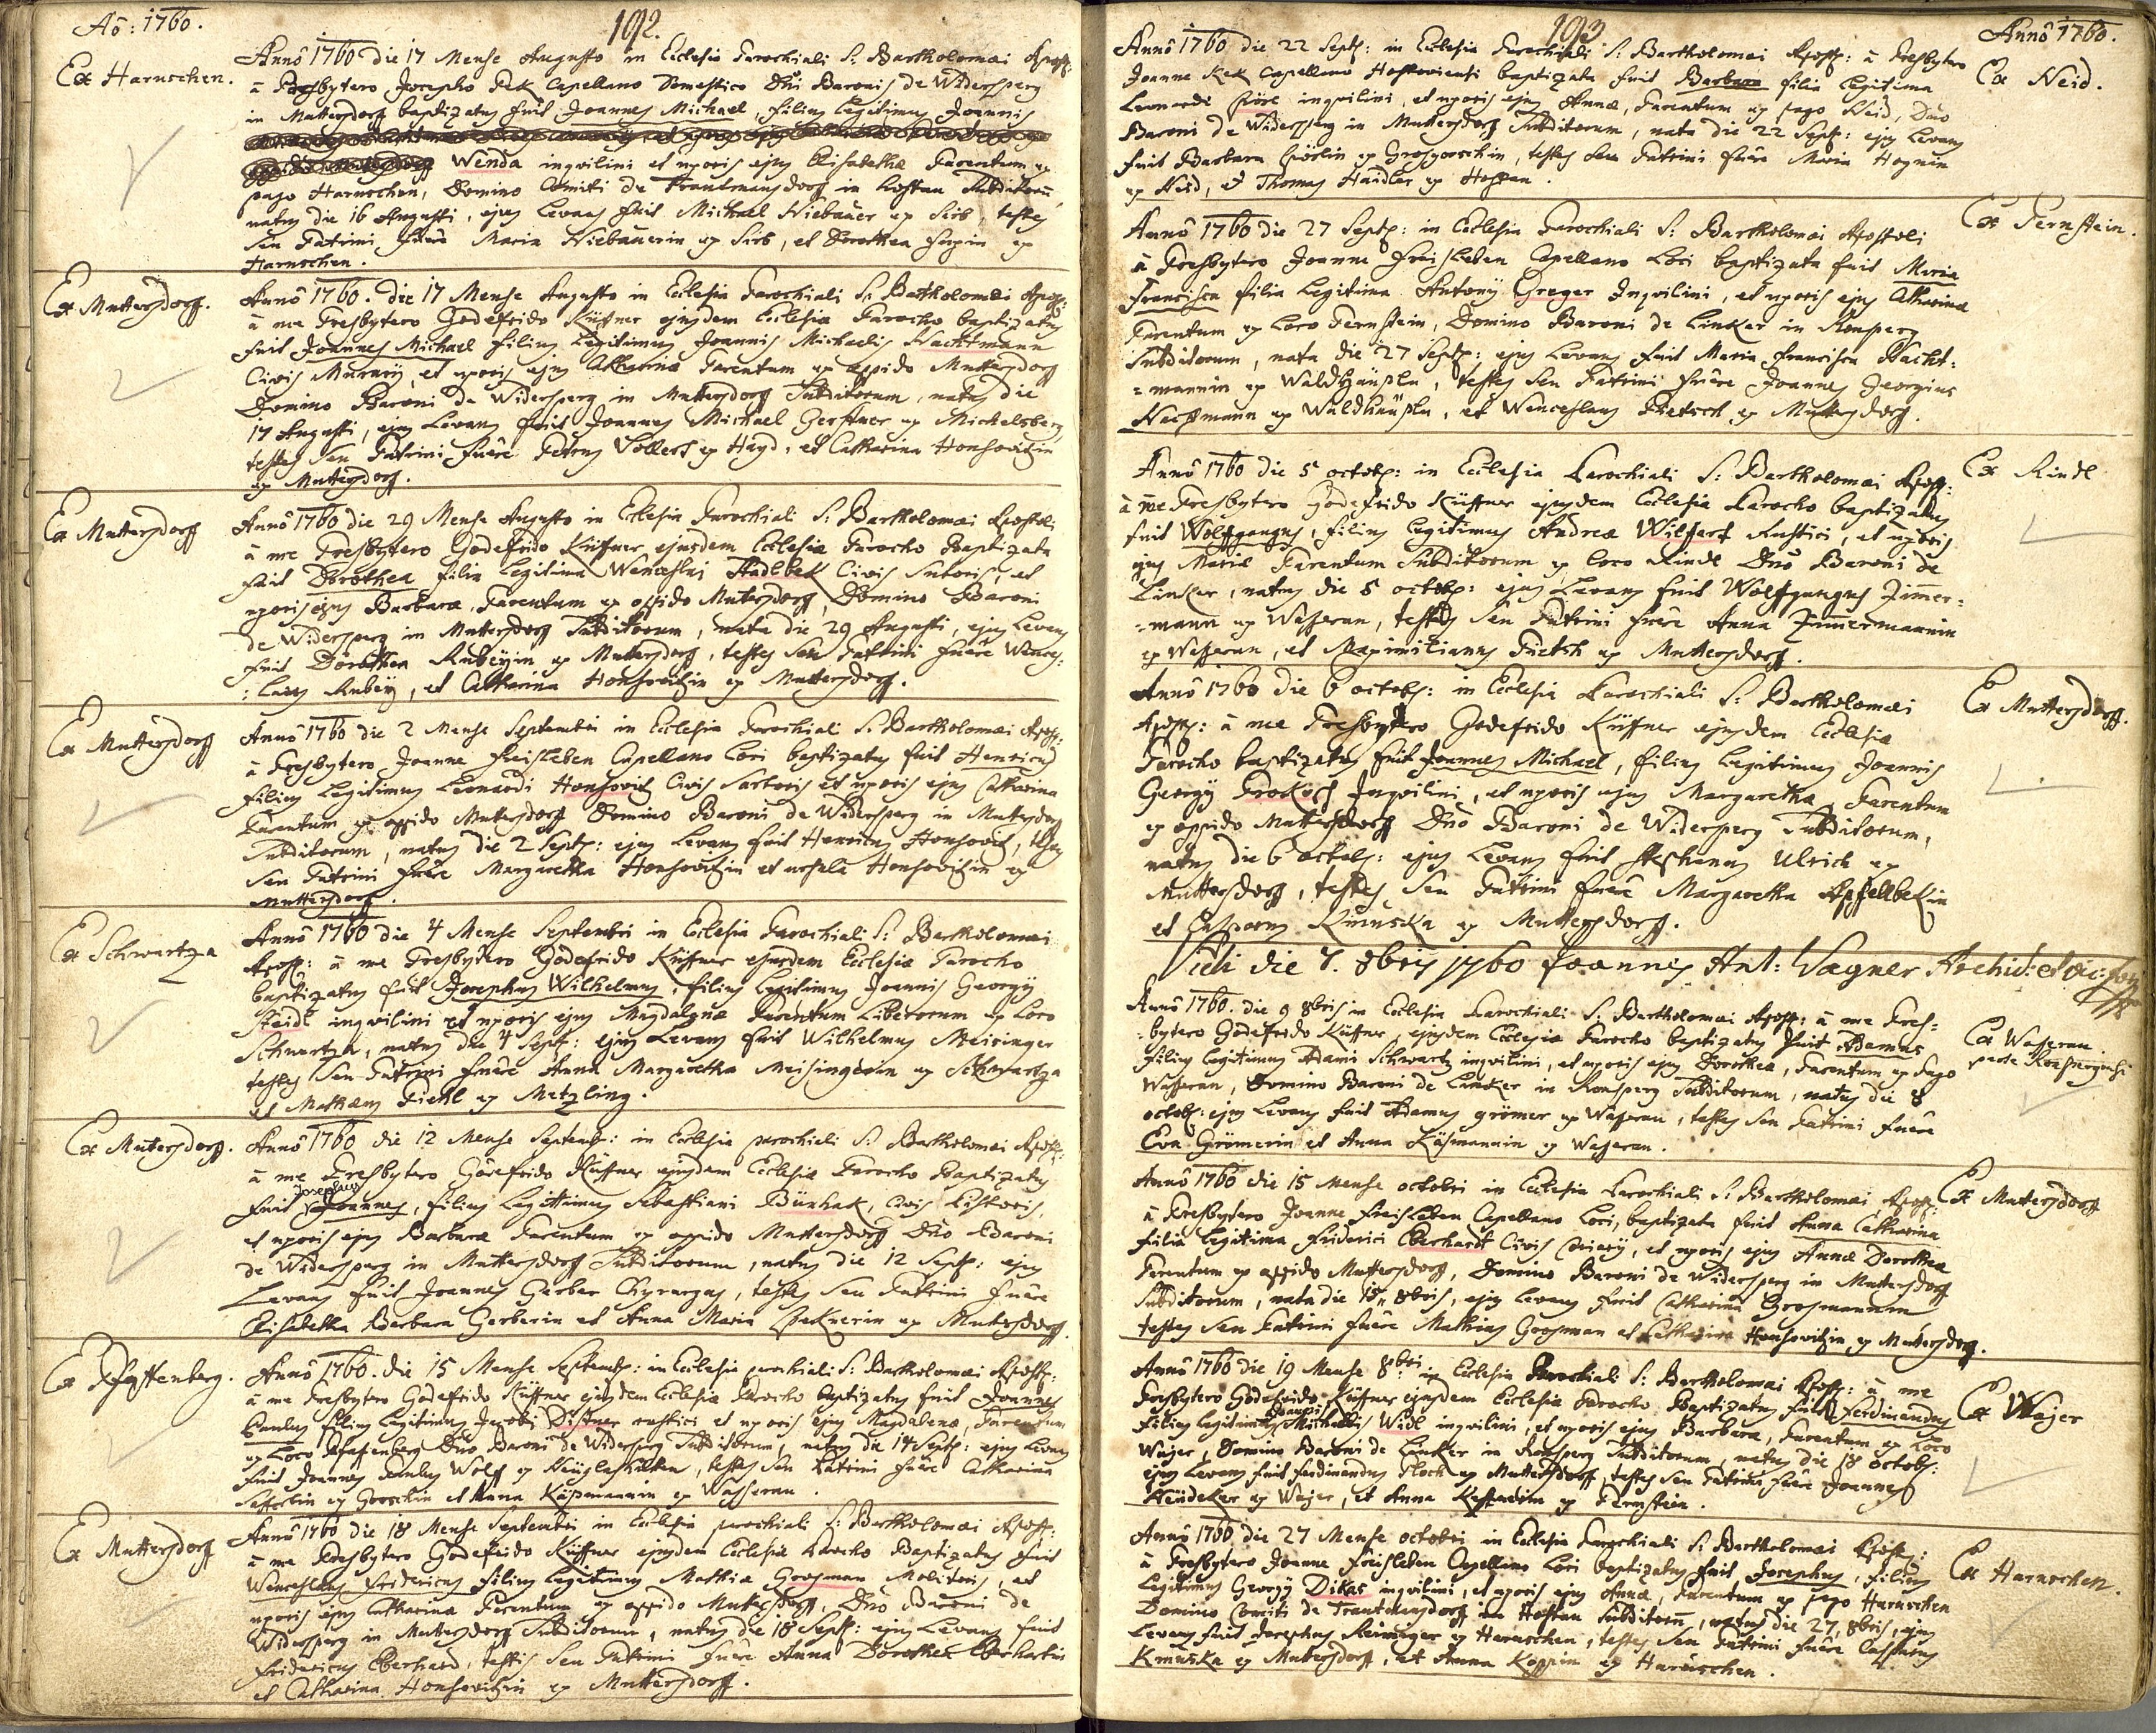 Aõ: 1760.
192.
Ex Harnschen.
Anno 1760 die 17 Mense Augusto in Ecclesia Parochiali S: Bartholomæi Apost:
à Presbytero Josepho Pek Capellano Domestico Dñi Baronis de Widersperg
in Muttersdorf baptizatus fuit Joannes Michael, filius legitimus Joannis
Wenda inquilini et uxoris ejus Elisabethæ Parentum ex
pago Harnschen, Domino Comiti de Trautmansdorf in Hostau Subditorũ,
natus die 16 Augusti, ejus Levans fuit Michael Niebauer ex Sirb, testes
seu Patrini fuêre Maria Niebauerin ex Sirb, et Dorothea ex
Harnschen.
Ex Muttersdorf.
Anno 1760. die 17 Mense Augusto in Ecclesia Parochiali S: Bartholomæi Apost:
à me Presbytero Godefrido Küffner ejusdem Ecclesiæ Parocho baptizatus
fuit Joannes Michael filius Legitimus Joannis Michaelis Hachtmann
Civis Murarij, et uxoris ejus Catharinæ Parentum ex oppido Muttersdorf
Domino Baroni de Widersperg in Muttersdorf Subditorum, natus die
17 Augusti, ejus Levans fuit Joannes Michael Gerstner ex Michelsberg,
testes seu Patrini fuêre Petrus Vollert ex Hayd, et Catharina Honsowitzin
ex Muttersdorf.
Ex Muttersdorf
Anno 1760 die 29 Mense Augusto in Ecclesia Parochiali S: Bartholomæi Apostoli
à me Presbytero Godefrido Küffner ejusdem Ecclesiæ Parocho Baptizata
fuit Dorothea filia Legitima Wenceslai Hadlbek Civis Sutoris, et
uxoris ejus Barbaræ, Parentum ex oppido Mutersdorf, Domino Baroni
de Widersperg in Muttersdorf Subditorum, nata die 29 Augusti, ejus Levans
fuit Dorothea Rubeyin ex Muttersdorf, testes seu Patrini fuêre Wences:
:laus Rubey, et Catharina Honsowitzin ex Muttersdorf.
Ex Muttersdorf
Anno 1760 die 2 Mense Septembri in Ecclesia Parochiali S: Bartholomæi Apost:
à Presbytero Joanne Freisleben Capellano Loci baptizatus fuit Henricus
filius Legitimus Leonardi Honsowitz Civis Sartoris et uxoris ejus Catharinæ
Parentum ex oppido Mutersdorf Domino Baroni de Widersperg in Muttersdorf
Subditorum, natus die 2 Septp: ejus Levans fuit Henricus Honsowitz, testes
seu Patrini fuêre Margaretha Honsowitzin et ursula Honsowitzin ex
Muttersdorf.
Ex Schwartza
Anno 1760 die 4 Mense Septembri in Eclesia Parochiali S: Bartholomæi
Apost: à me Presbytero Godefrido Küffner ejusdem Ecclesiæ Parocho
baptizatus fuit Josephus Wilhelmus, filius Legitimus Joannis Georgij
Steidl inquilini et uxoris ejus Magdalenæ Parentum Liberorum ex Loco
Schwartza, natus die 4 Sept: ejus Levans fuit Wilhelmus Meisinger
testes seu Patrini fuêre Anna Margaretha Meisingerin ex Schwartza
et Mathæus Piehl ex Metzling.
Ex Mutersdorf.
Anno 1760 die 12 Mense Septemb: in Ecclesia parochiali S: Bartholomæi Apost:
à me Presbytero Godefrido Küffner ejusdem Ecclesiæ Parocho Baptizatus
Josephus
fuit Joannes, filius Legittimus Sebastiani Bürhak, Civis Pistoris,
et uxoris ejus Barbaræ Parentum ex oppido Muttersdorf Dño Baroni
de Widersperg in Muttersdorf Subditorum, natus die 12 Sept: ejus
Levans fuit Joannes Gerber Chyrurgus, testes seu Patrini fuêre
Elisabetha Barbara Gerberin et Anna Maria ex Mutersdorf.
Ex Pfaffenberg.
Anno 1760. die 15 Mense Septemp: in Ecclesia parochiali S: Bartholomæi Apost:
à me Presbytero Godefrido Küffner ejusdem Ecclesiæ Parocho baptizatus fuit Joannes
Paulus filius Legitimus Jacobi Distner rustici et uxoris ejus Magdalenæ, Parentum
ex Loco Pfaffenberg Dño Baroni de Widersperg Subditorum, natus die 14 Sept: ejus Levans
fuit Joannes Paulus Wolff ex Neuglashütten, testes seu Patrini fuêre Catharina
ex Groschin et Anna Käsmannin ex Wasserau.
Ex Muttersdorf
Anno 1760 die 18 Mense Septembri in Ecclesia parochiali S: Bartholomæi Apost:
à me Presbytero Godefrido Küffner ejusdem Ecclesiæ Parocho Baptizatus fuit
Wenceslaus Fridericus filius Legitimus Mathiæ Grosman Molitoris, et
uxoris ejus Catharinæ Parentum ex oppido Mutersdorf, Dño Baroni de
Widersperg in Muttersdorf Subditorum, natus die 18 Sept: ejus Levans fuit
Fridericus Eberhard, testis seu Patrini fuêre Anna Dorothea Eberhartin
et Catharina Honsowitzin ex Muttersdorf.
193
Anno 1760.
Ex Neid.
Anno 1760 die 22 Septp: in Ecclesia Parochiali S: Bartholomæi Apost: à Presbytero
Joanne Kek Capellano Hostoviensi baptizata fuit Barbara filia legitima
Leonardi inquilini, et uxoris ejus Annæ, Parentum ex pago Neid, Dño
Baroni de Widersperg in Muttersdorf Subditorum, nata die 22 Sept: ejus Levans
fuit Barbara ex Grosgorschin, testes seu Patrini fuêre Maria Hognin
ex Neid, et Thomas Haidler ex Hossan.
Ex Pernstein.
Anno 1760 die 27 Septp: in Ecclesia Parochiali S: Bartholomæi Apostoli
à Presbytero Joanne Freisleben Capellano Loci baptizata fuit Maria
Francisca filia Legitima Antonij Greger Inquilini, et uxoris ejus Catharinæ
Parentum ex Loco Pernstein, Domino Baroni de Linker in Ronsperg
Subditorum, nata die 27 Septp: ejus Levans fuit Maria Francisca Nacht:
=mannin ex Waldhäusln, testes seu Patrini fuêre Joannes Georgius
Nachtmann ex Waldhäusln, et Wenceslaus Pietsch ex Muttersdorf.
Ex Rindl
Anno 1760 die 5 octobp: in Ecclesia Parochiali S: Bartholomæi Apost:
à me Presbytero Godefrido Küffner ejusdem Ecclesiæ Parocho baptizatus
fuit Wolfgangus, filius legitimus Andreæ Wilfert Rustici, et uxoris
ejus Mariæ Parentum Subditorum ex loco Rindl Dño Baroni de
Linker, natus die 5 octobp: ejus Levans fuit Wolfgangus Zimer=
=mann ex Wasserau, testes seu Patrini fuêre Anna Zimmermannin
ex Wasserau, et Maximilianus Pietsch ex Muttersdorf.
Ex Muttersdorf.
Anno 1760 die 6 octob: in Ecclesia Parochiali S: Bartholomæi
Apost: à me Presbytero Godefrido Küffner ejusdem Ecclesiæ
Parocho baptizatus fuit Joannes Michael, filius Legitimus Joannis
Georgij Prokosch Inquilini, et uxoris ejus Margarethæ, Parentum
ex oppido Muttersdorf Dño Baroni de Widersperg Subditorum,
natus die 6 octob: ejus Levans fuit Stephanus Ulrich ex
Muttersdorf, testes seu Patrini fuêre Margaretha Apfellbekin
et Casparus Kmuska ex Muttersdorf.
Vidi die 7. 8bris 1760 Joannes Ant: Wagner Archid: et
Ex Wasserau
parte Ronspergensi
Anno 1760. die 9 8bris in Ecclesia Parochiali S: Bartholomæi Apost: à me Pres=
=bytero Godefrido Küffner, ejusdem Ecclesiæ Parocho baptizatus fuit Adamus
filius legitimus Adami Schwartz inquilini, et uxoris ejus Dorotheæ, Parentum ex Pago
Wasserau, Domino Baroni de Linker in Ronsperg Subditorum, natus die 8
octob: ejus Levans fuit Adamus grömer ex Wasserau, testes seu Patrini fuêre
Eva Grömerin et Anna Käsmannin ex Wasserau.
Ex Muttersdorf
Anno 1760 die 15 Mense octobri in Ecclesia Parochiali S: Bartholomæi Apost:
à Presbytero Joanne Freisleben Capellano Loci, baptizata fuit Anna Catharina
filia legitima Friderici Eberhardt Civis Coriarij, et uxoris ejus Annæ Dorotheæ
Parentum ex oppido Muttersdorf, Domino Baroni de Widersperg in Muttersdorf
Subditorum, nata die 15 8bris, ejus Levans fuit Catharina Grosmannin
testes seu Patrini fuêre Mathias Grosman et Catharina Honsowitzin ex Muttersdorf.
Ex Wajer
Anno 1760 die 19 Mense 8bri in Ecclesia Parochiali S: Bartholomæi Apost: à me
Presbytero Godefrido Küffner ejusdem Ecclesiæ Parocho Baptizatus fuit Ferdinandus
filius legitimus Michaelis Widl inquilini, et uxoris ejus Barbaræ, Parentum ex Loco
Wajer, Domino Baroni de Linker in Ronsperg Subditorum, natus die 18 octob:
ejus Levans fuit Ferdinandus Ploch ex Muttersdorf, testes seu Patrini fuêre Joannes
Neudeker ex Wajer, et Anna ex Pernstein.
Ex Harnschen.
Anno 1760 die 27 Mense octobri in Ecclesia Parochiali S: Bartholomæi Apost:
à Presbytero Joanne Freisleben Capellano Loci baptizatus fuit Josephus, filius
legitimus Georgij Dikas inquilini, et uxoris ejus Annæ, Parentum ex pago Harnschen
Domino Comiti de Trautmansdorf in Hostau Subditorũ, natus die 27, 8bris, ejus
Levans fuit Josephus Reiminger ex Harnschen, testes seu Patrini fuêre Casparus
Kmuska ex Mutersdorf, et Anna Koppin ex Harnschen.